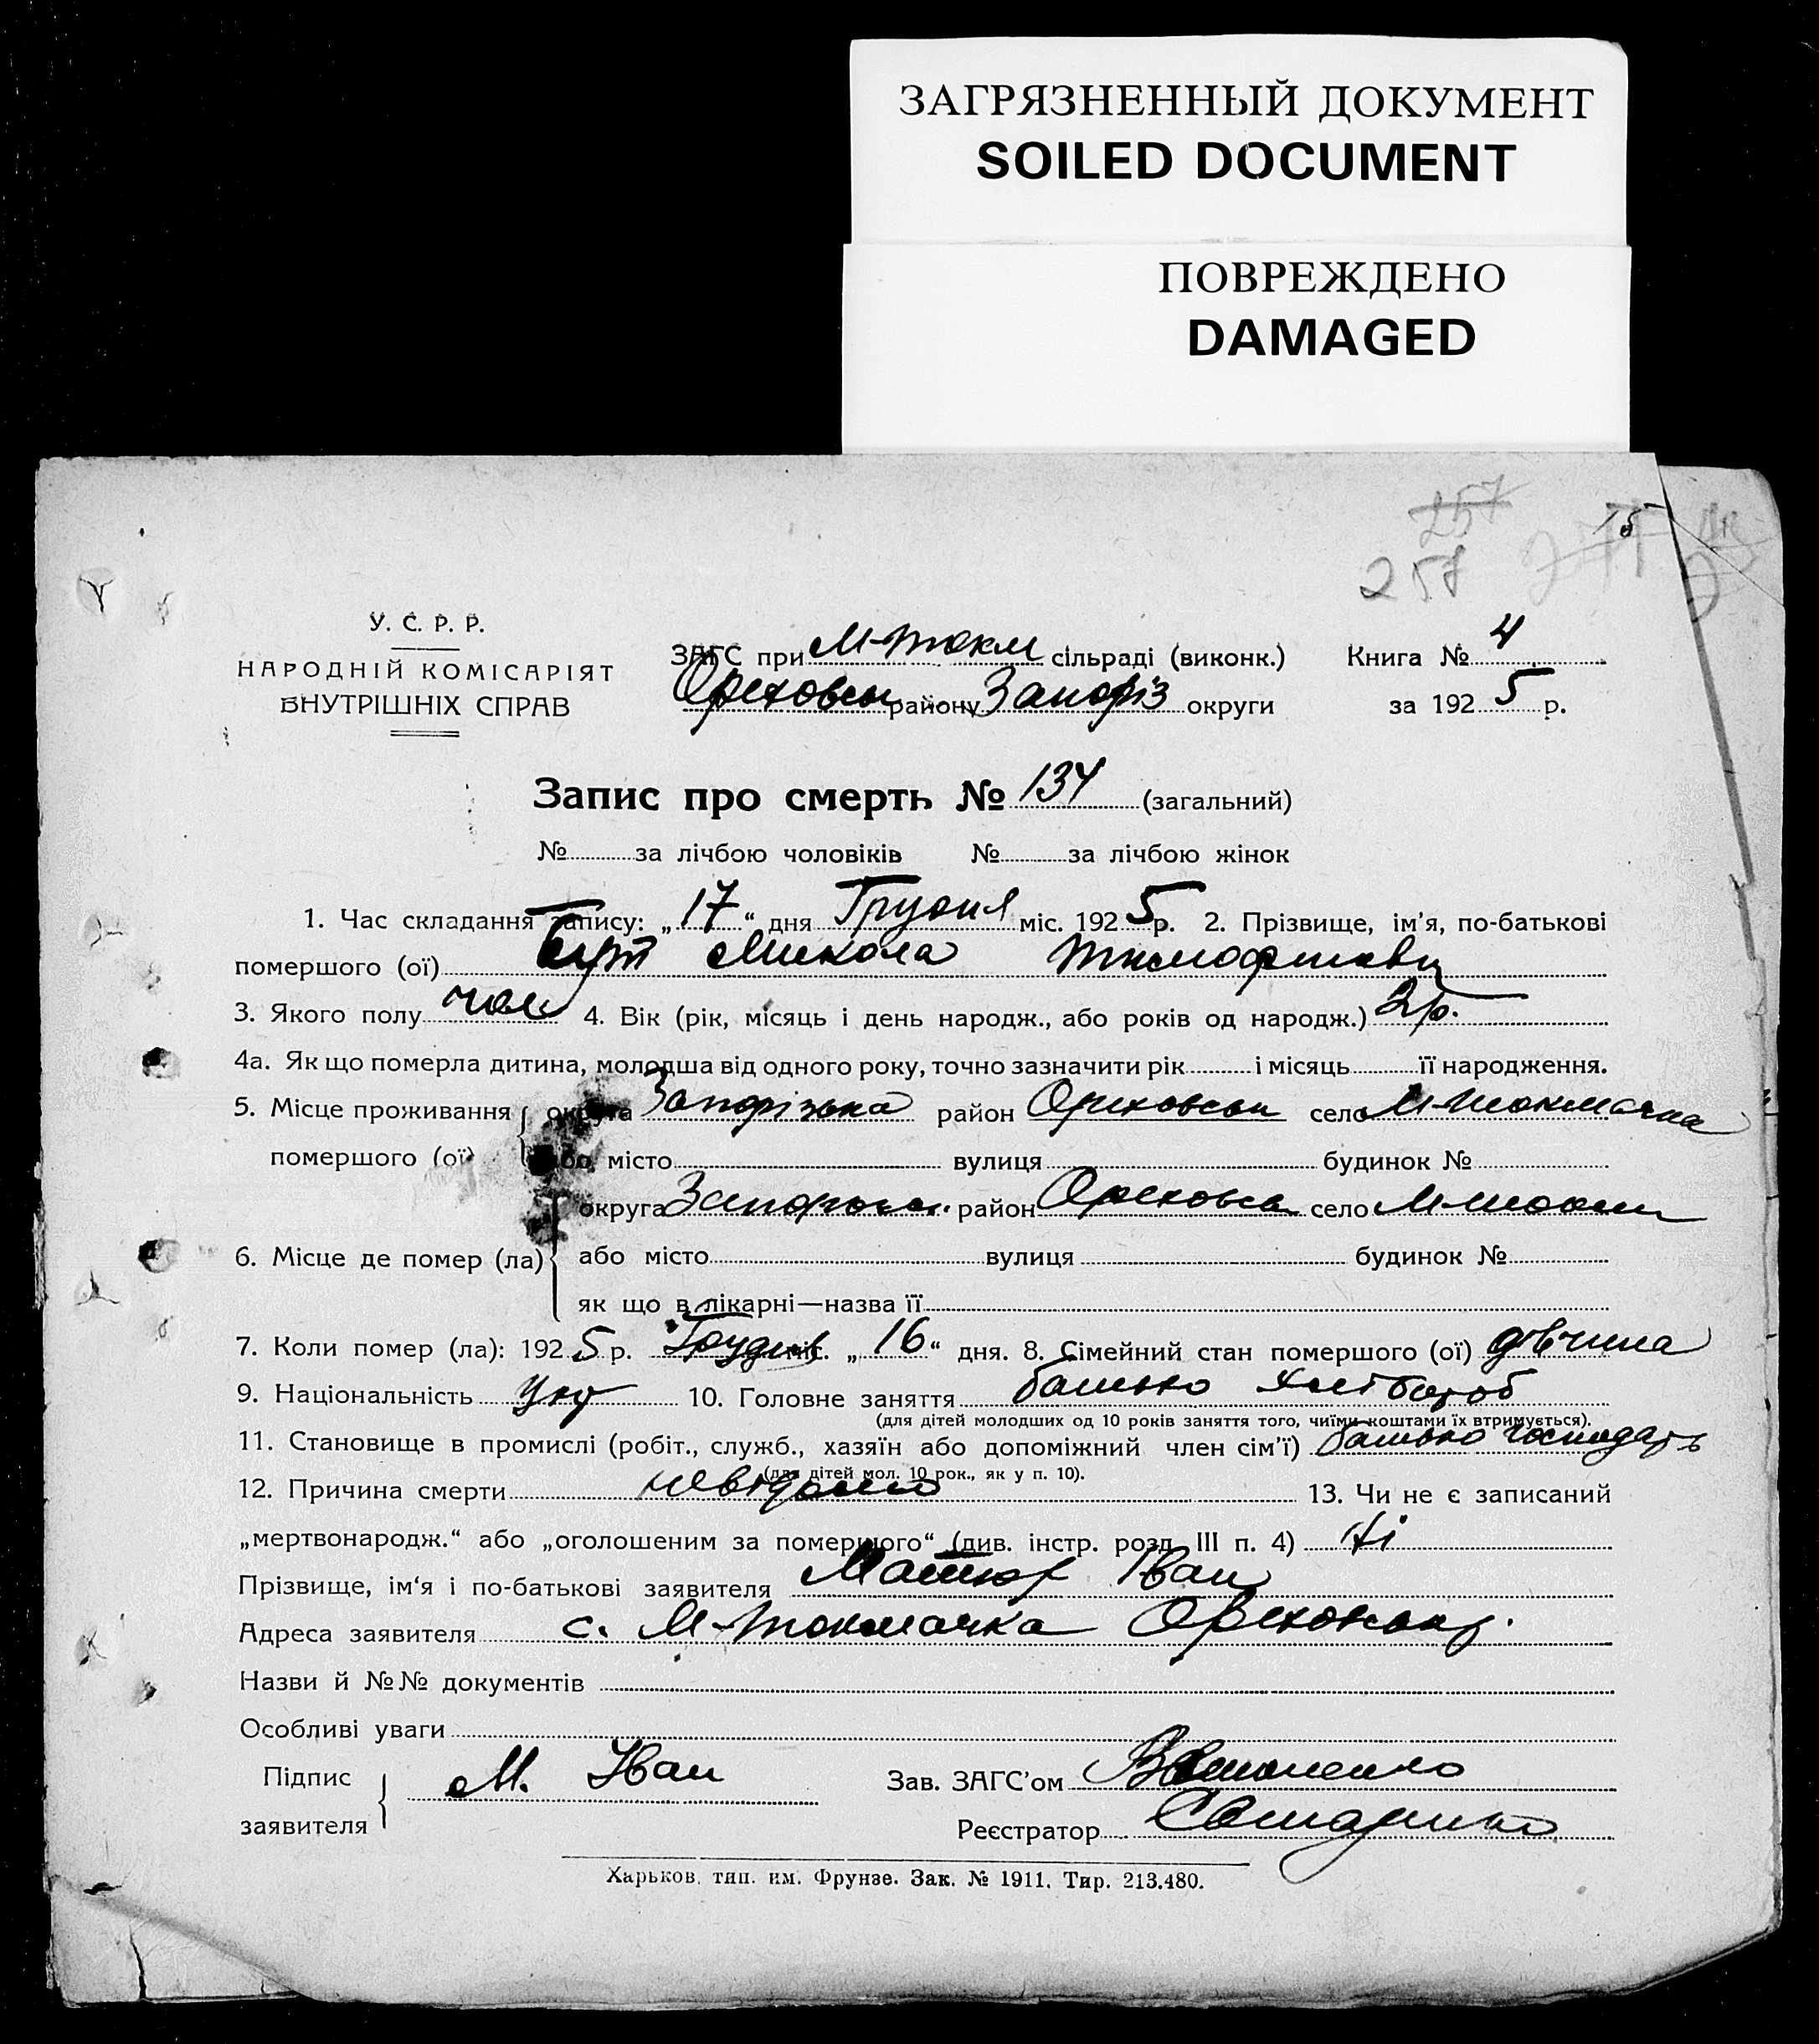 ЗАГРЯЗНЕННЫЙ ДОКУМЕНТ
SOILED DOCUMENT
ПОВРЕЖДЕНО
DAMAGED
257
257
У. С. Р. Р.
НАРОДНІЙ КОМІСАРІЯТ
ВНУТРІШНІХ СПРАВ
ЗАГС при М-Токм сільраді (виконк.) Книга № 4
Ореховськ району Запоріз округи за 1925 р.
Запис про смерть № 134 (загальний)
№ за лічбою чоловіків № за лічбою жінок
1. Час складання запису: „17“ дня Грудня міс. 1925 р. 2. Прізвище, ім'я, по-батькові
помершого (ої) Бут Микола Тимофійов
3. Якого полу чол 4. Вік (рік, місяць і день народж., або років од народж.) 2 р.
4а. Як що померла дитина, молодша від одного року, точно зазначити рік і місяць її народження.
5. Місце проживання округа Запорізька район Ореховськ село М-Токмачка
помершого (ої) або місто вулиця будинок №
округа район Ореховськ село М-Токм
6. Місце де помер (ла) або місто вулиця будинок №
як що в лікарні—назва її
7. Коли помер (ла): 1925 р. Грудня міс. „16“ дня. 8. Сімейний стан помершого (ої) дівчина
9. Національність Укр 10. Головне заняття батько хлібороб
(для дітей молодших од 10 років заняття того, чиїми коштами їх втримується).
11. Становище в промислі (робіт., служб., хазяїн або допоміжний член сім'ї) батько господарь
(для дітей мол. 10 рок., як у п. 10).
12. Причина смерти невідомо 13. Чи не є записаний
„мертвонародж.“ або „оголошеним за помершого“ (див. інстр. розд. III п. 4) Ні
Прізвище, ім'я і по-батькові заявителя Іван
Адреса заявителя с. М-Токмачка Ореховськ р.
Назви й №№ документів
Особливі уваги
Підпис М. Іван Зав. ЗАГС'ом
заявителя Реєстратор
Харьков, тип. им. Фрунзе. Зак. № 1911. Тир. 213.480.